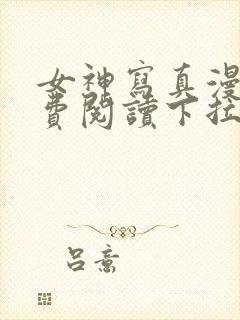 女神寫真漫
費閱讀下拉
呂意